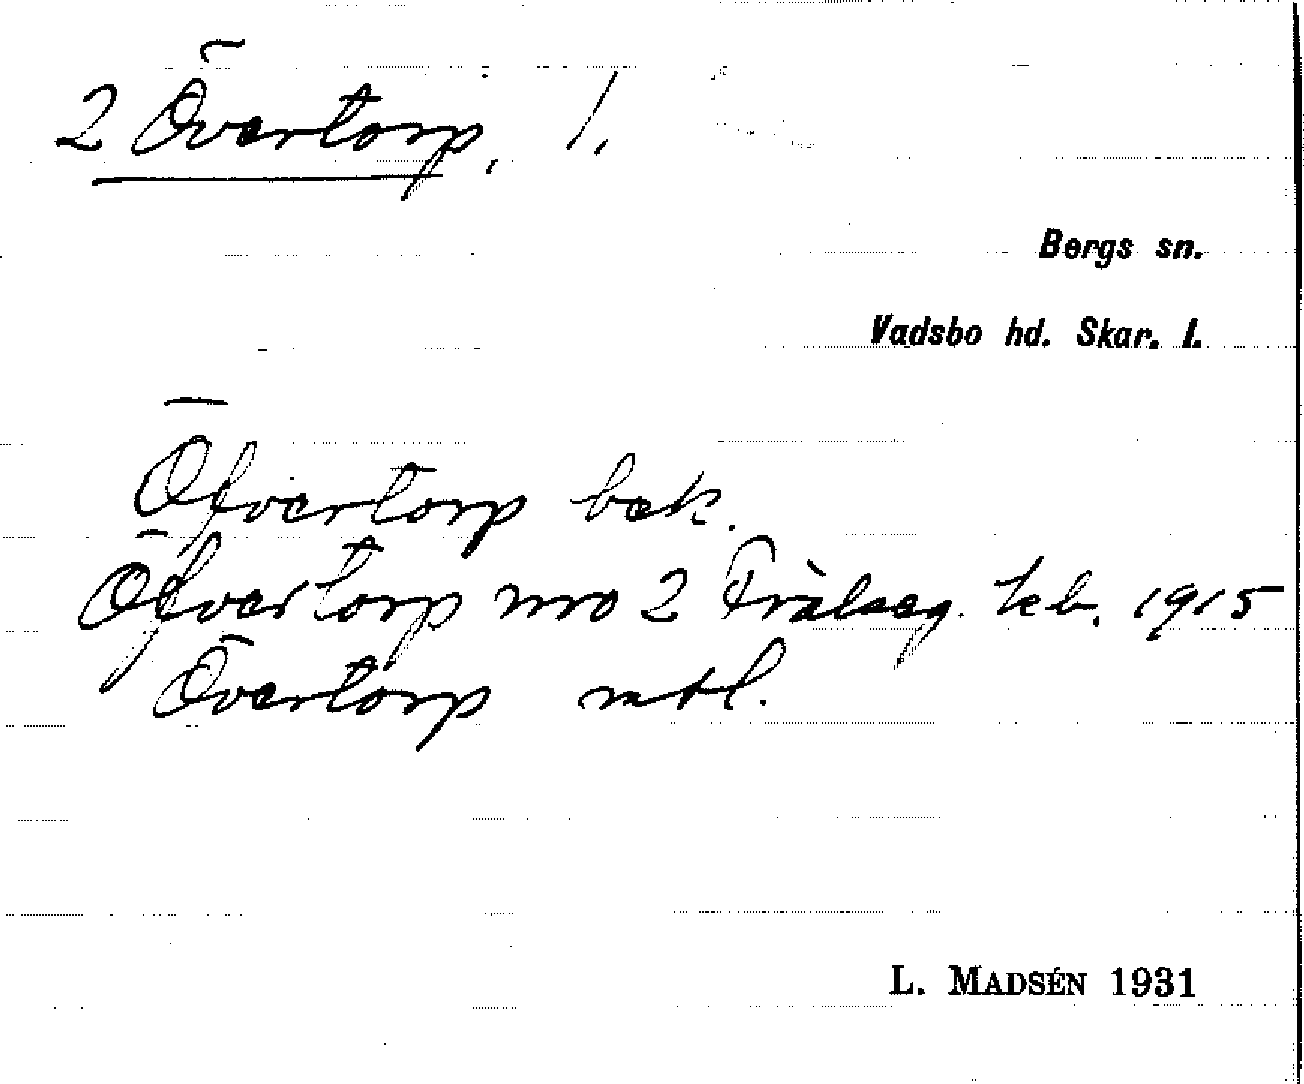 2 Övertorp, 1,
Bergs sn.
Vadsbo hd. Skar. l.
Öfvertorp bek.
Öfvertorp nro 2 Frälseg. keb. 1915
Övertorp mtl.
L. MADSÉN 1931